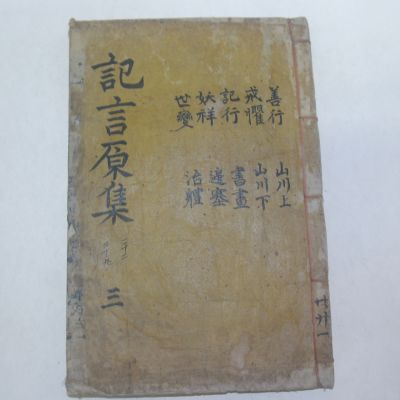 善行
戒懼
記行
妖祥
世變
山川上
山川下
書畫
邊塞
治體
記言原集 三